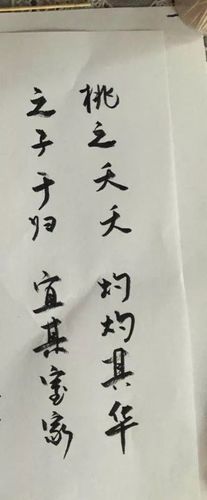 桃之夭夭 灼灼其华
之子于归 宜其室家